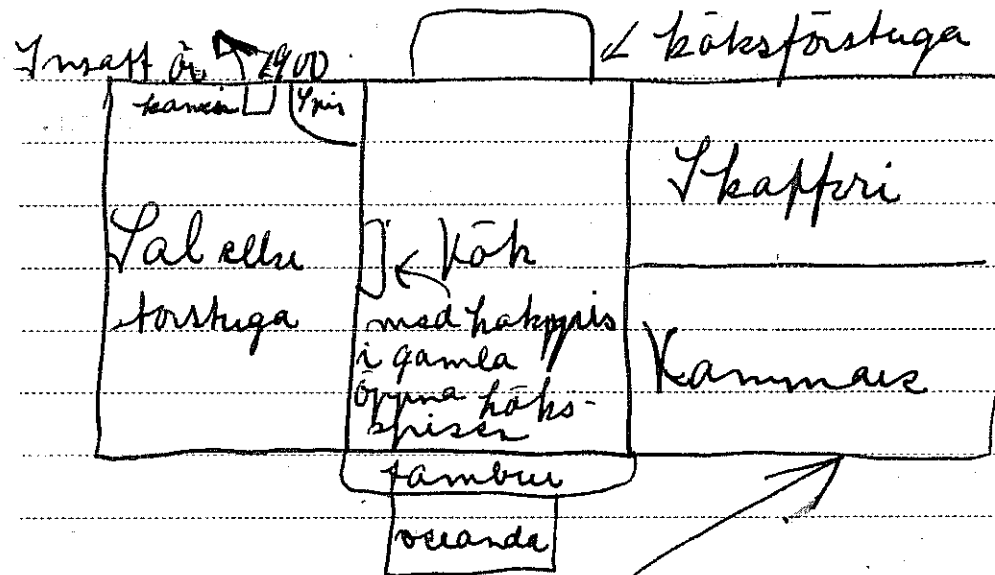 Insatt år 1900
köksförstuga
kamin
Spis
Sal eller
storstuga
Kök
med kokspis
i gamla
öppna köks-
spisen
Skafferi
Kammare
tambur
veranda